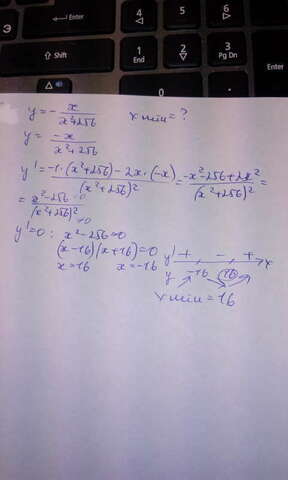 Э
Enter
4
5
6
Shift
1
End
2
3
Pg Dn
Enter
0
y = - x/(x²+256)   x min = ?
y = -x/(x²+256)
y' = (-1·(x²+256) - 2x·(-x))/(x²+256)² = (-x²-256+2x²)/(x²+256)² =
= (x²-256)/(x²+256)²
y'=0 : x²-256=0
(x-16)(x+16)=0
x=16   x=-16
y' + - + x
y -16 16
x min = 16